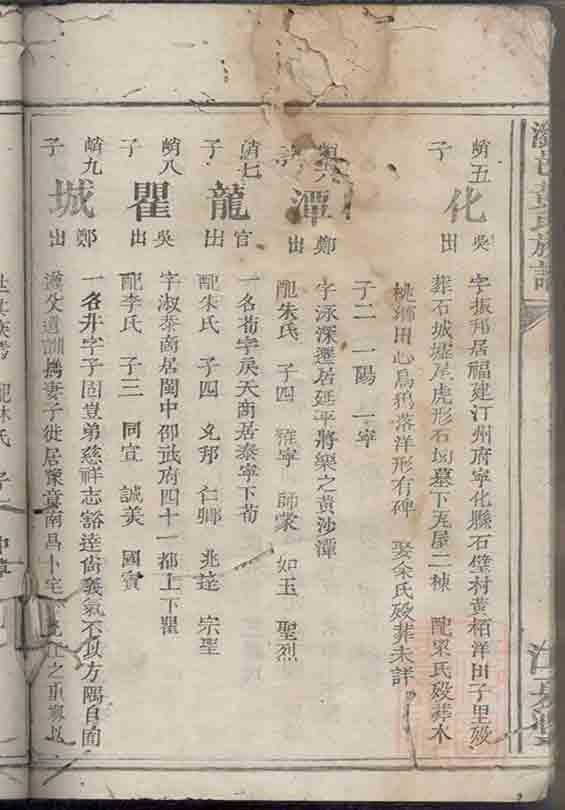 邑黃氏族譜
江夏堂
峭五子
化
吳出
字振邦居福建汀州府寧化縣石壁村黃柏洋田子里歿
葬石城壩尾虎形石圳墓下瓦屋二棟 配梁氏歿葬木
桃鄉田心烏鴉落洋形有碑 娶余氏歿葬未詳
子二 一陽 一寧
峭六
潭
鄭出
字泳深遷居延平將樂之黃沙潭
配朱氏 子四 雍寧 師蒙 如玉 聖烈
峭七子
龍
官出
一名荀字戾天商居泰寧下荀
配朱氏 子四 允邦 仁卿 兆達 宗聖
峭八子
瞿
吳出
字淑泰商居閩中邵武府四十一都上下瞿
配李氏 子三 同宜 誠美 國賓
峭九子
城
鄭出
一名井字子固豈弟慈祥志豁達尚義氣不以方隅自囿
遵父遺訓攜妻子徙居豫章南昌卜宅 之重
配林氏 子